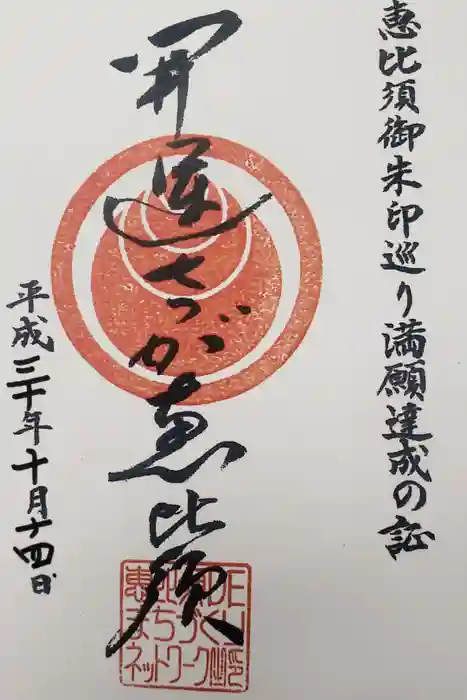 恵比須御朱印巡り満願達成の証
開運さづがゑ恵比須
平成三十年十月十四日
恵比
まちづくり
ネットワーク